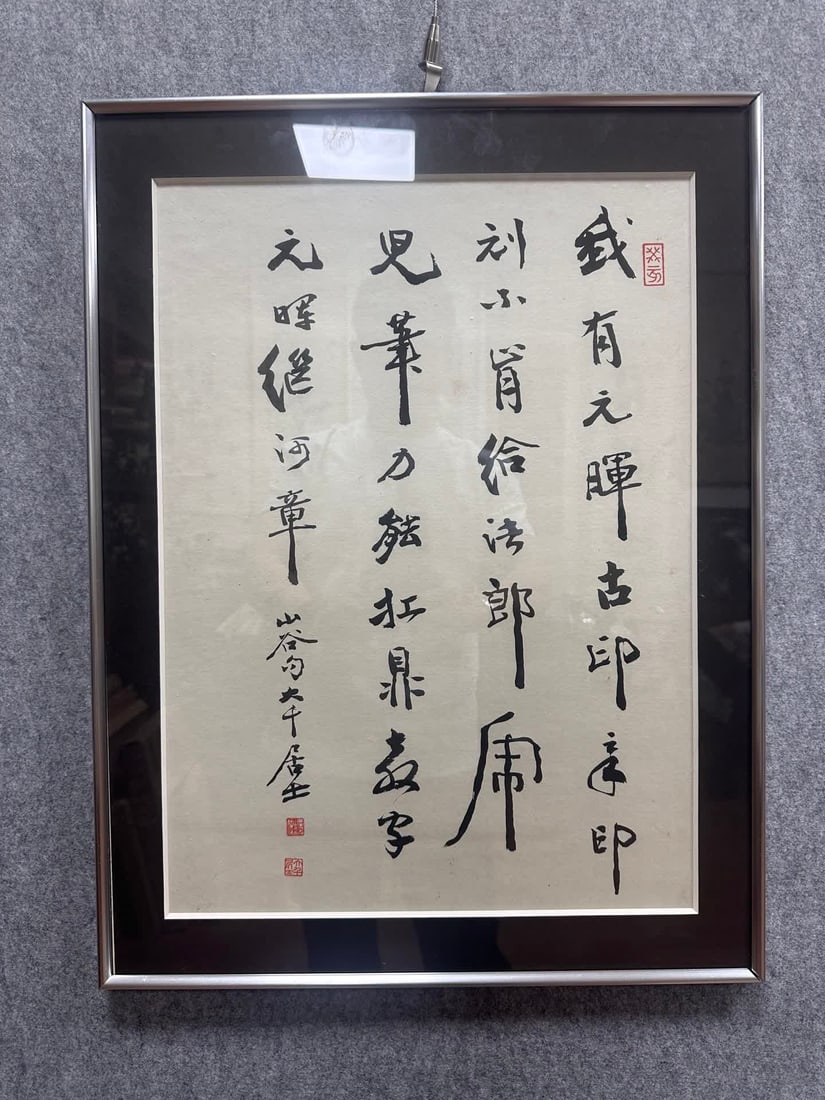 我有元暉古印章印
刓不肯給諸郎虎
兒筆力能扛鼎教字
元暉繼阿章
山谷句大千居士